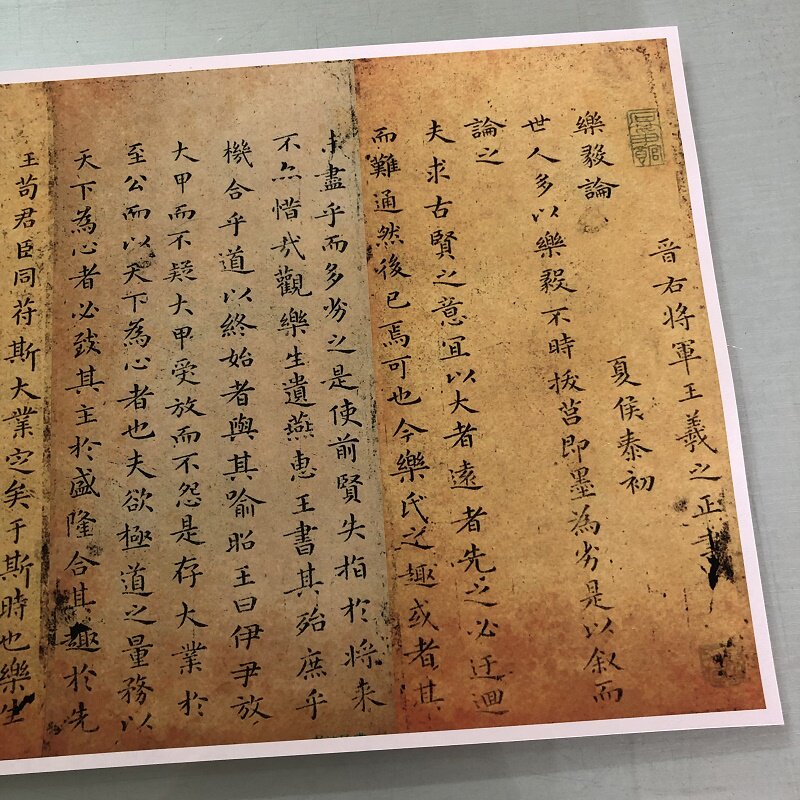 晉右将軍王羲之正書
樂毅論 夏侯泰初
世人多以樂毅不時拔莒即墨為劣是以叙而
論之
夫求古賢之意宜以大者遠者先之必迂迴
而難通然後已焉可也今樂氏之趣或者其
未盡乎而多劣之是使前賢失指於将来
不亦惜哉觀樂生遺燕惠王書其殆庶乎
機合乎道以終始者與其喻昭王曰伊尹放
大甲而不疑大甲受放而不怨是存大業於
至公而以天下為心者也夫欲極道之量務以
天下為心者必致其主於盛隆合其趣於先
王苟君臣同苻斯大業定矣于斯時也樂生